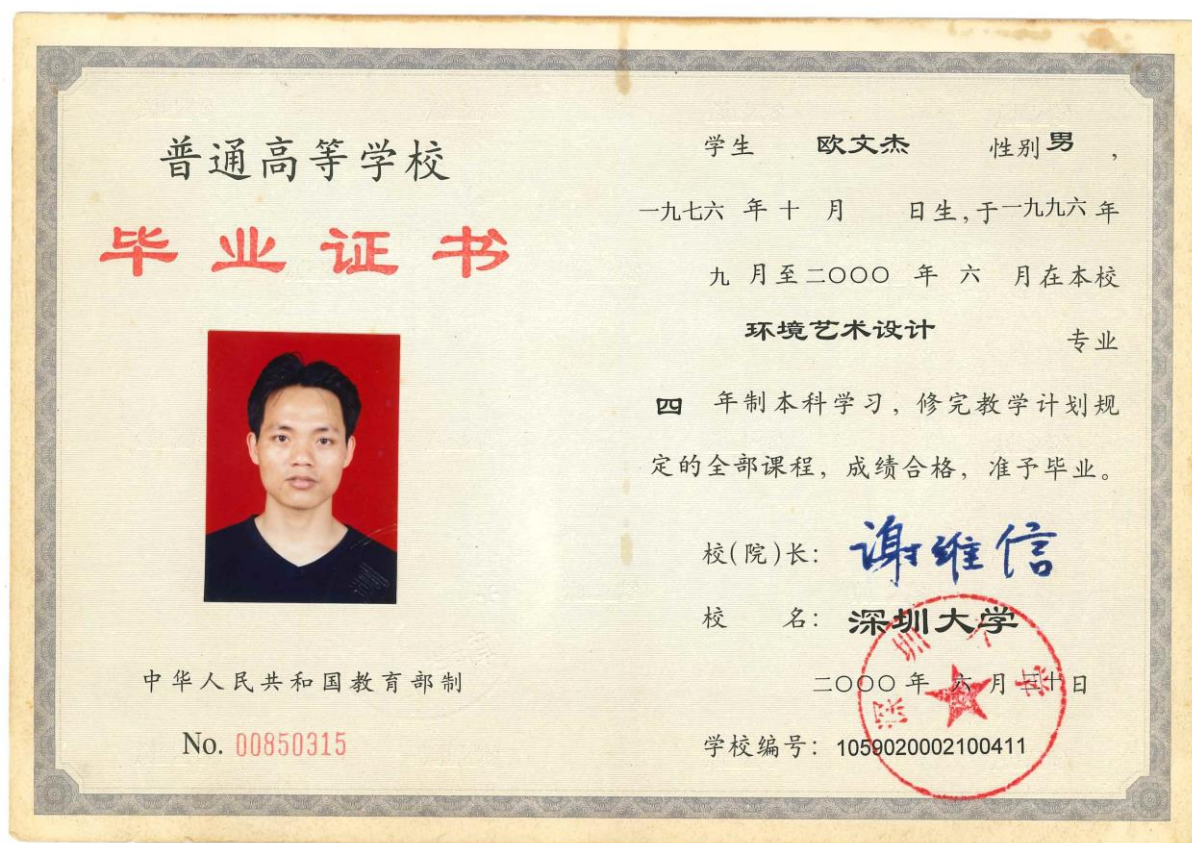 普通高等学校
毕业证书
中华人民共和国教育部制
No. 00850315
学生 欧文杰 性别男，
一九七六 年 十 月 日生，于一九九六 年
九 月至二〇〇〇 年 六 月在本校
环境艺术设计 专业
四 年制本科学习，修完教学计划规
定的全部课程，成绩合格，准予毕业。
校(院)长：谢维信
校 名：深圳大学
二〇〇〇 年 六 月三十日
学校编号：1059020002100411
深圳大学